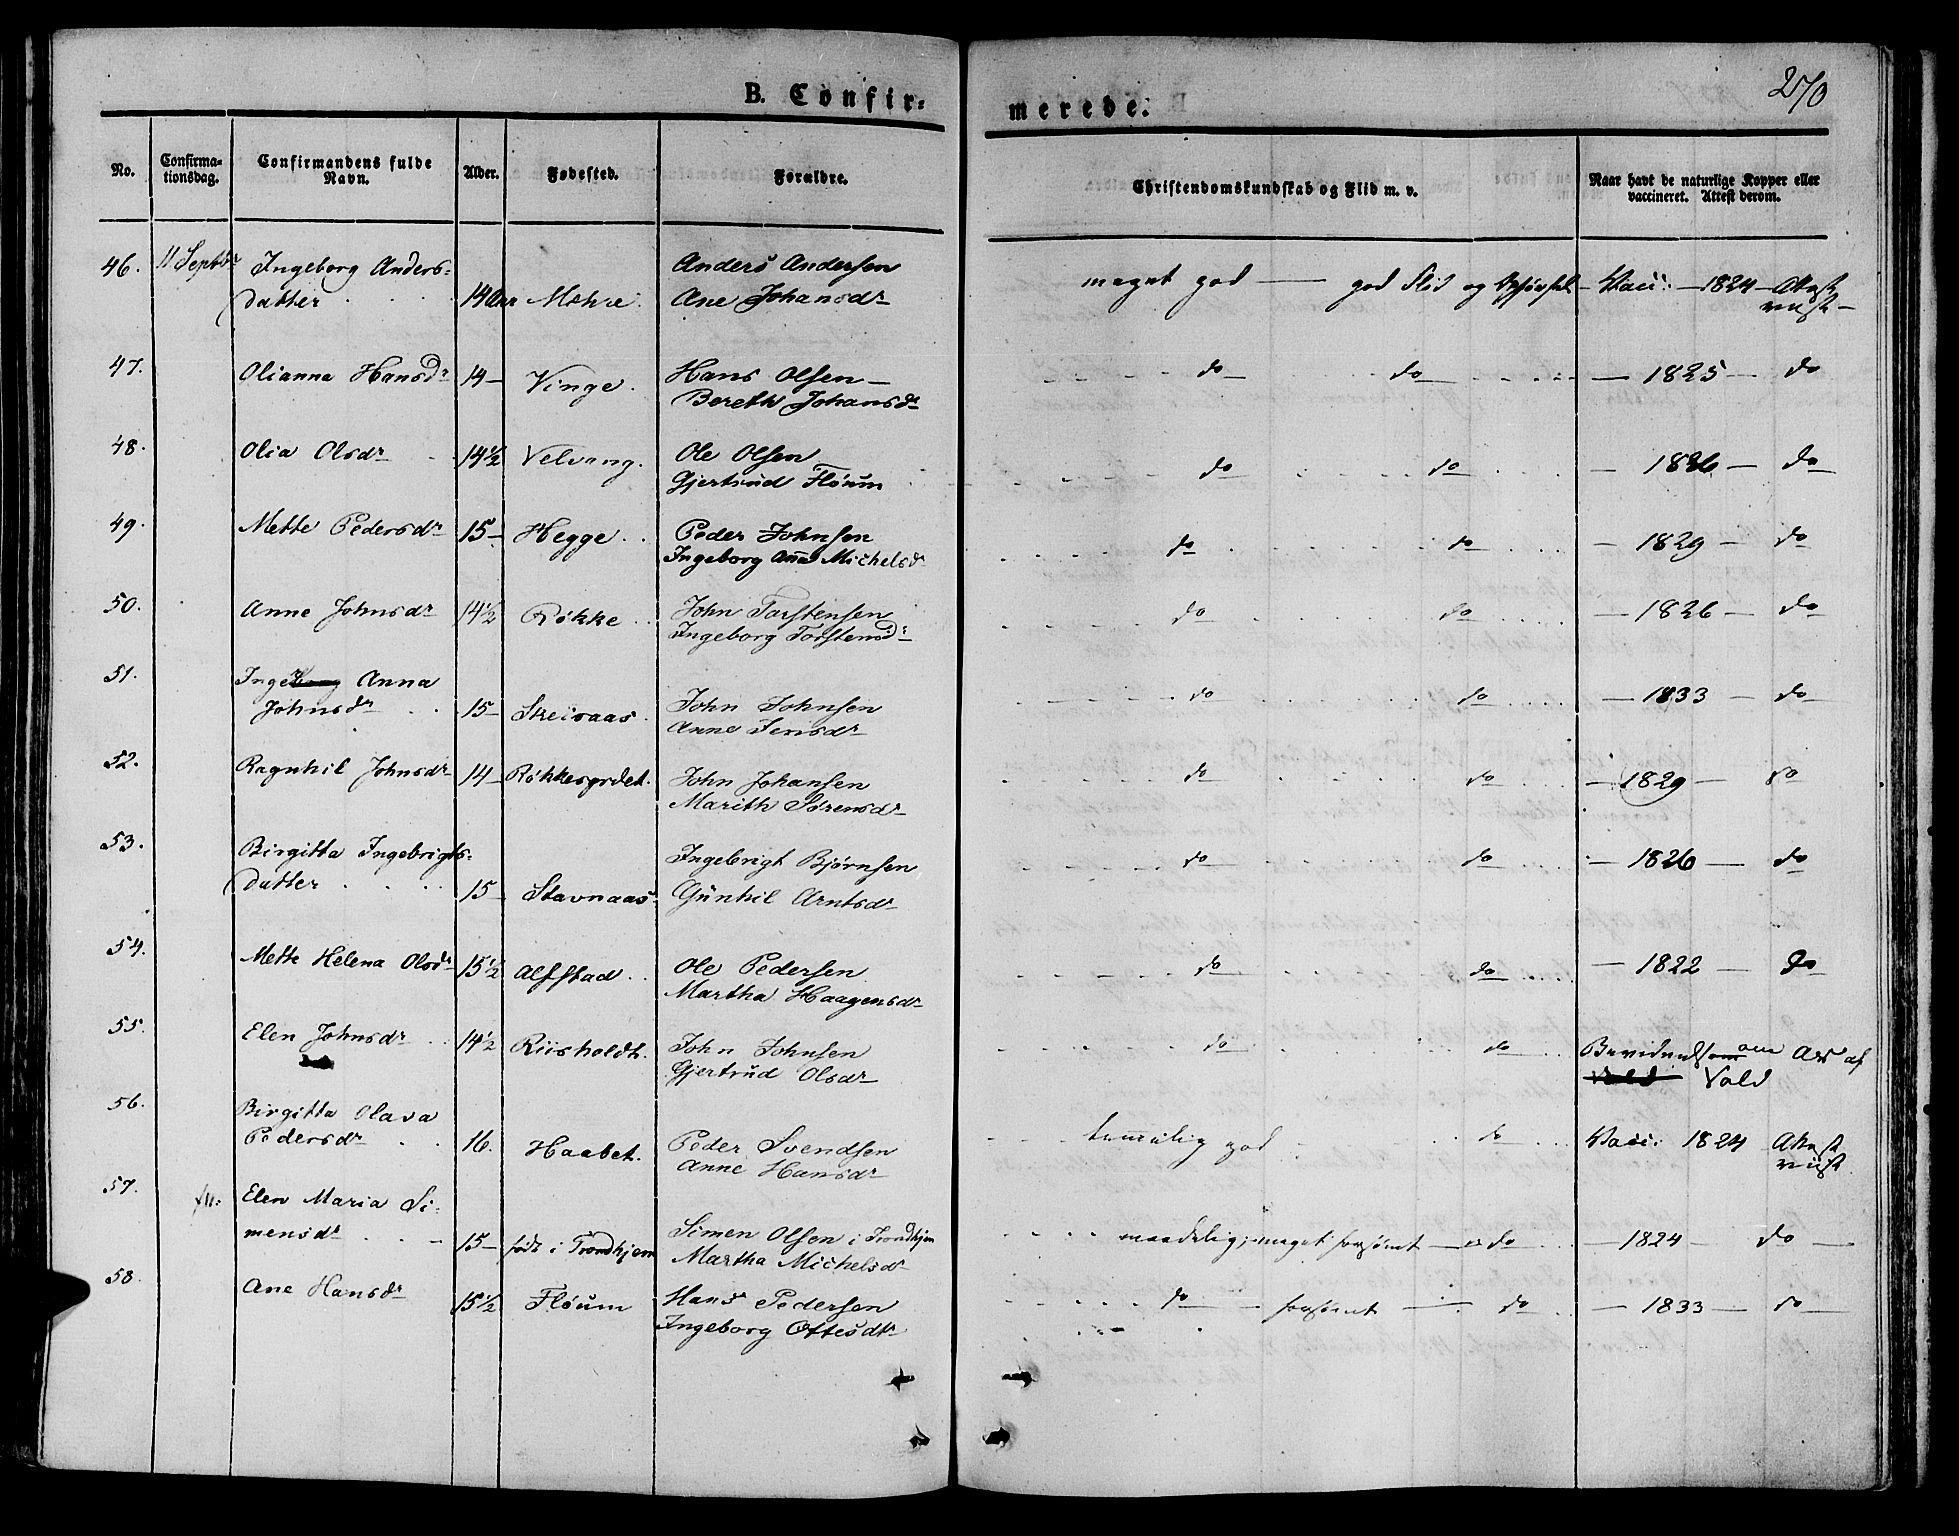 270
B. Confir=
merede.
No.
Confirma-
tionsdag.
Confirmandens fulde
Navn.
Alder.
Fødested.
Forældre.
Christendomskundskab og Flid m. v.
Naar havt de naturlige Kopper eller
vaccineret. Attest derom.
46. 11 Septbr Ingeborg Anders= Anders Andersen
datter 14 Aar Ane Johansdr
meget god — god Flid og – Vacc: — 1824 — Attest
47. Olianna Hansdr 14 — Vinge. Hans Olsen —
Bereth Johansdr
do do — 1825 — do
48. Olia Olsdr 14½ Velvang. Ole Olsen
Gjertrud Fløum
do do — 1826 — do
49. Mette Pedersdr 15 — Hegge Peder Johnsen
Ingeborg Anna Michelsdr
do do — 1829 — do
50. Anne Johnsdr 14½ Røkke John Torstensen
Ingeborg Torstensdr
do do — 1826 — do
51. Anna
Johnsdr 15 — Skeisaas John Johnsen
Anne Jensdr
do do — 1833 — do
52. Ragnhil Johnsdr 14 — John Johansen
Marith Sørensdr
do do — 1829 — do
53. Birgitta Ingebrigts= Ingebrigt Bjørnsen
datter 15 Stavnaas Gunhil Arntsdr
do do — 1826 — do
54. Mette Helena Olsdr 15½ Alfstad Ole Pedersen
Martha Haagensdr
do do — 1822 — do
55. Elen Johnsdr 14½ Riisholdt. John Johnsen
Gjertrud Olsdr
do do af
Vold
56. Birgitta Olava
Pedersdr 16. Haabet. Peder Svendsen
Anne Hansdr
temmelig god do Vacc: 1824 Attest
57. Elen Maria Si=
mensdr 15 — født i Trondhjem Simen Olsen i Trondhjem
Martha Michelsdr
maadelig, meget forsømt — do — 1824 — do —
58. Ane Hansdr 15½ Fløum Hans Pedersen
Ingeborg Ottesdtr
do — forsømt — do — 1833 — do —